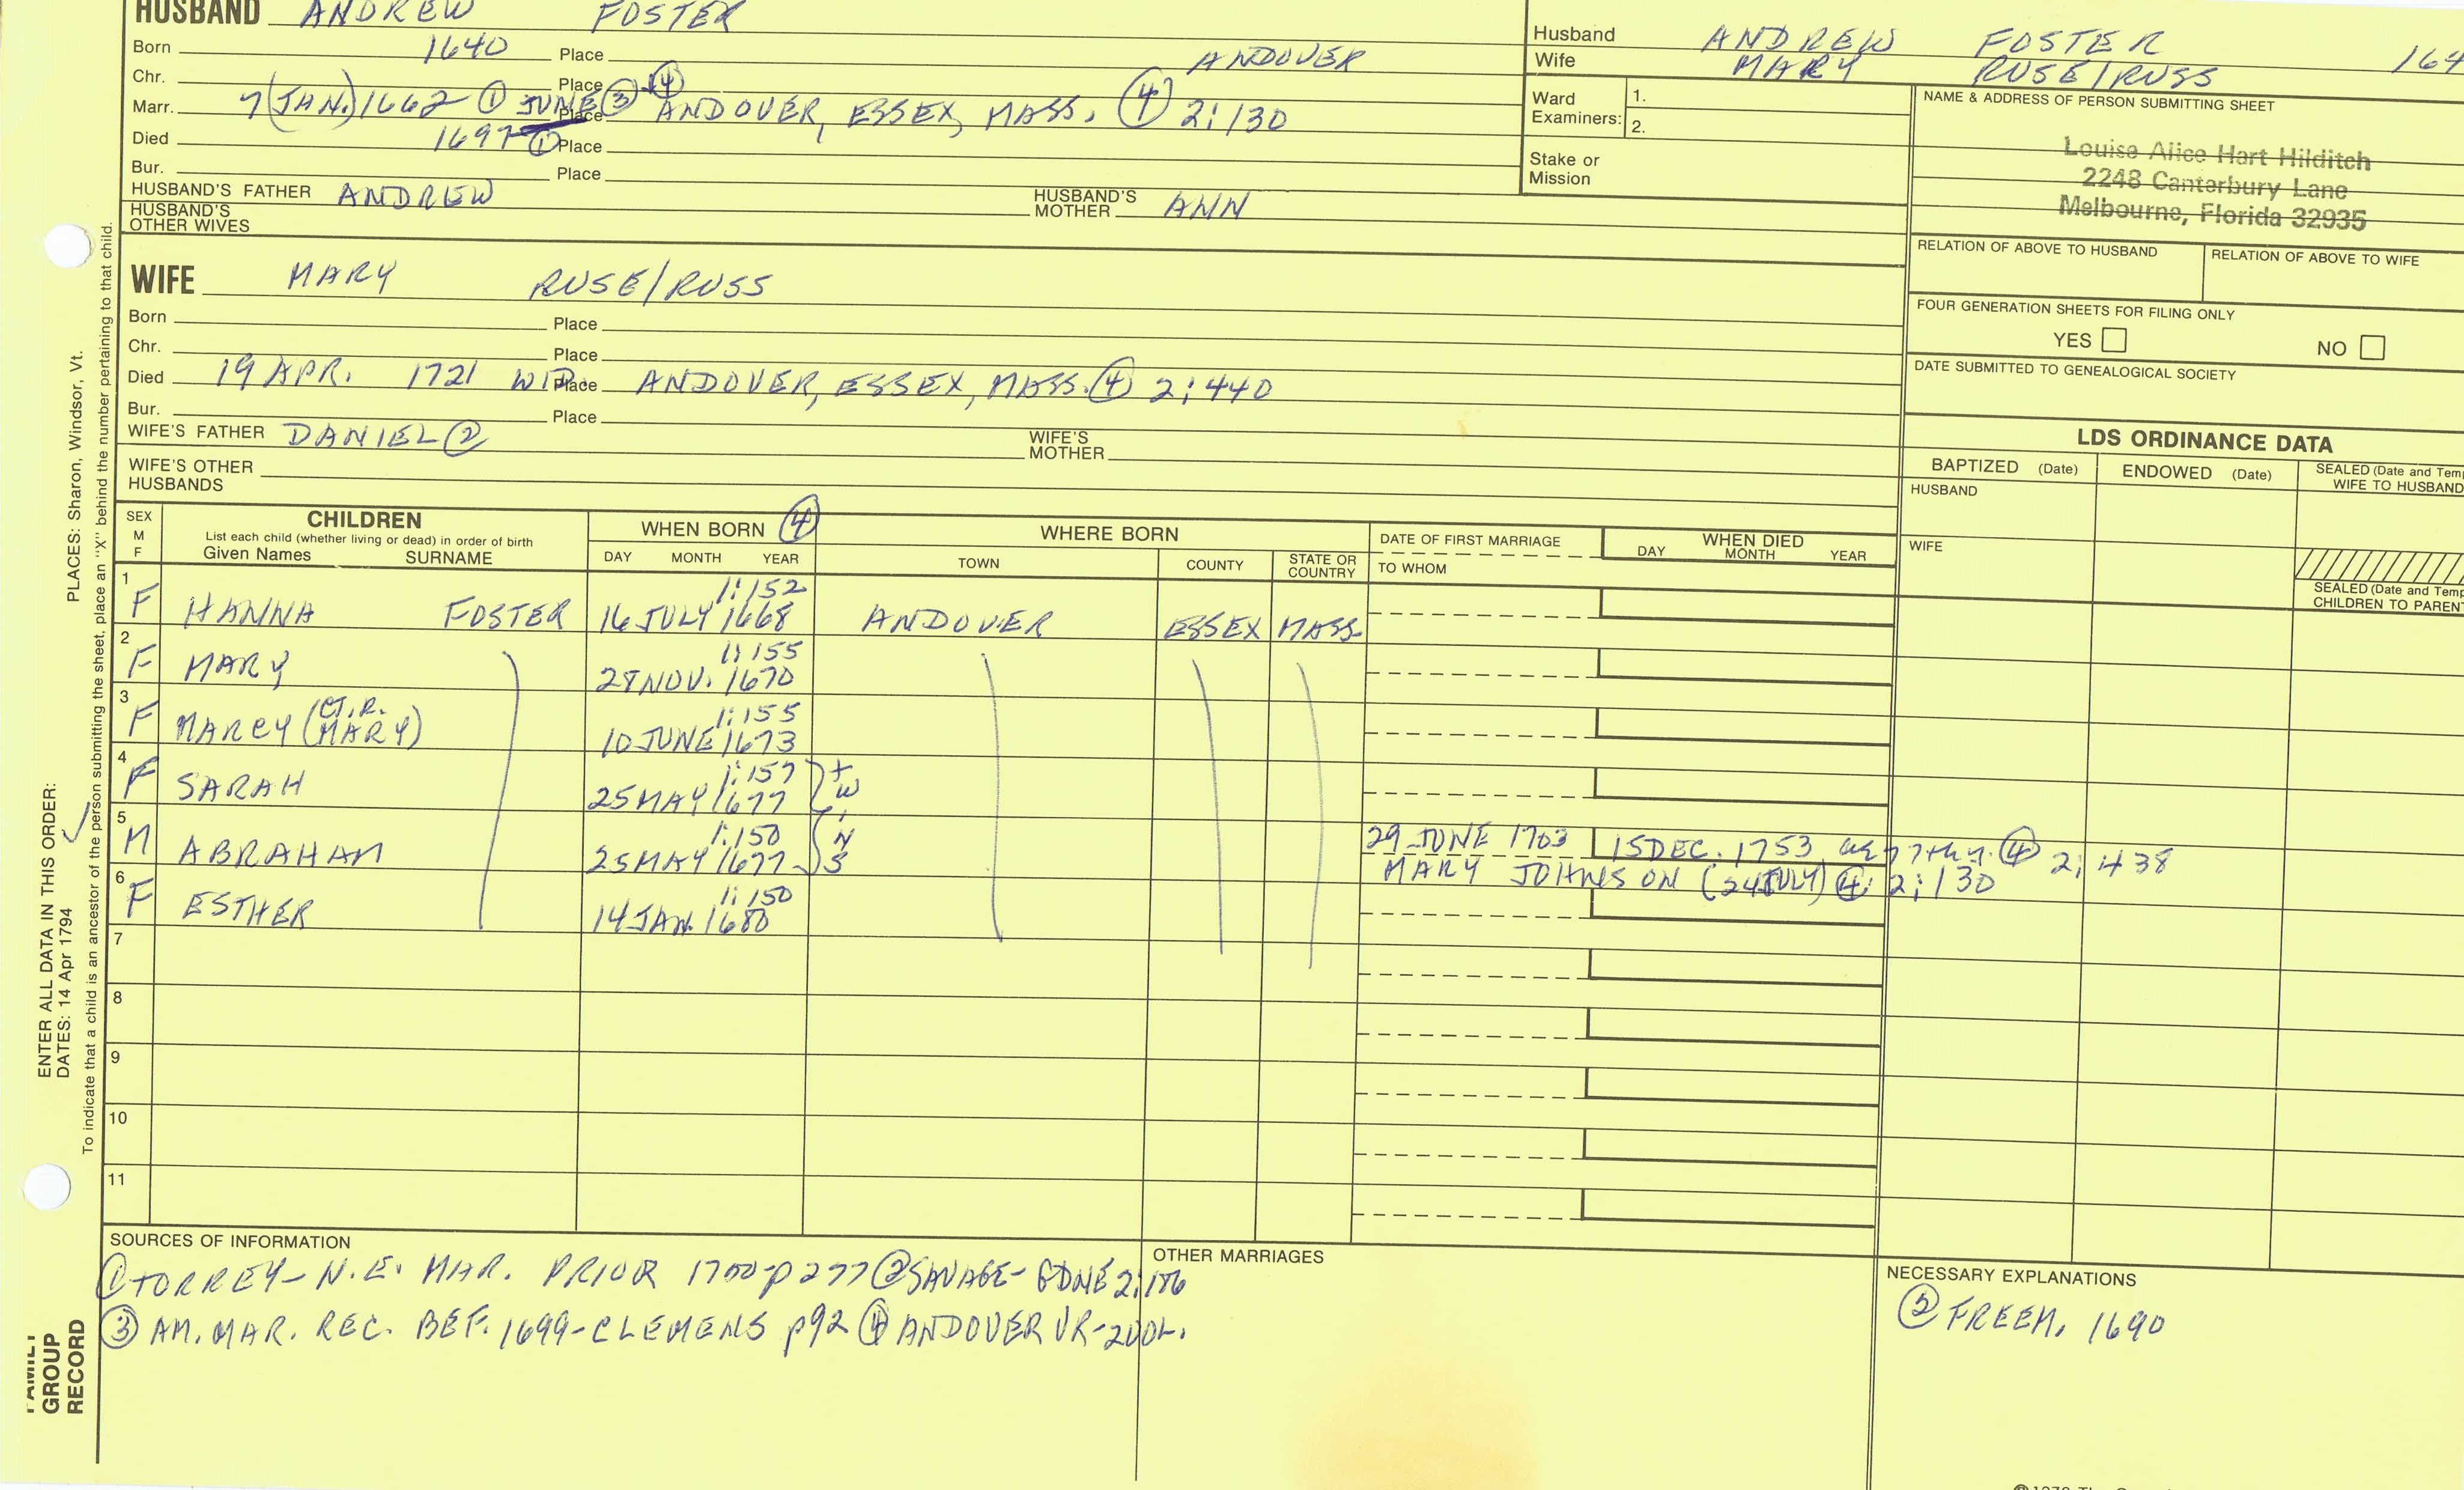 HUSBAND ANDREW FOSTER
Born 1640 Place ANDOVER
Chr. Place
Marr. 7 (JAN.) 1662 ① JUNE ③ ④ Place ANDOVER, ESSEX, MASS. ④ 2:130
Died 1697 ① Place
Bur. Place
HUSBAND'S FATHER ANDREW HUSBAND'S MOTHER ANN
HUSBAND'S OTHER WIVES
WIFE MARY RUSE/RUSS
Born Place
Chr. Place
Died 19 APR. 1721 WID. Place ANDOVER, ESSEX, MASS. ④ 2:440
Bur. Place
WIFE'S FATHER DANIEL ② WIFE'S MOTHER
WIFE'S OTHER HUSBANDS
Husband ANDREW FOSTER 164
Wife MARY RUSE/RUSS
Ward Examiners: 1.
2.
Stake or Mission
NAME & ADDRESS OF PERSON SUBMITTING SHEET
Louise Alice Hart Hilditch
2248 Canterbury Lane
Melbourne, Florida 32935
RELATION OF ABOVE TO HUSBAND RELATION OF ABOVE TO WIFE
FOUR GENERATION SHEETS FOR FILING ONLY
YES NO
DATE SUBMITTED TO GENEALOGICAL SOCIETY
LDS ORDINANCE DATA
BAPTIZED (Date) ENDOWED (Date) SEALED (Date and Temp
WIFE TO HUSBAND
HUSBAND
WIFE
SEALED (Date and Temp
CHILDREN TO PARENT
SEX M F CHILDREN WHEN BORN ④ WHERE BORN DATE OF FIRST MARRIAGE WHEN DIED
List each child (whether living or dead) in order of birth
Given Names SURNAME DAY MONTH YEAR TOWN COUNTY STATE OR COUNTRY TO WHOM DAY MONTH YEAR
1 F HANNA FOSTER 1:152 16 JULY 1668 ANDOVER ESSEX MASS.
2 F MARY 1:155 28 NOV. 1670
3 F MARCY (CT.R. MARY) 1:155 10 JUNE 1673
4 F SARAH 1:157 25 MAY 1677 twins
5 M ABRAHAM 1:150 25 MAY 1677 29 JUNE 1703 15 DEC. 1753 ④ 2:438
MARY JOHNSON (24 JULY) ④ 2:130
6 F ESTHER 1:150 14 JAN. 1680
7
8
9
10
11
SOURCES OF INFORMATION
① TORREY - N.E. MAR. PRIOR 1700 - p 277 ② SAVAGE - GDNE 2:186
③ AM. MAR. REC. BEF. 1699 - CLEMENS p92 ④ ANDOVER VR - 2VOL.
OTHER MARRIAGES
NECESSARY EXPLANATIONS
② FREEM. 1690
ENTER ALL DATA IN THIS ORDER:
DATES: 14 Apr 1794 PLACES: Sharon, Windsor, Vt.
To indicate that a child is an ancestor of the person submitting the sheet, place an "X" behind the number pertaining to that child.
FAMILY GROUP RECORD